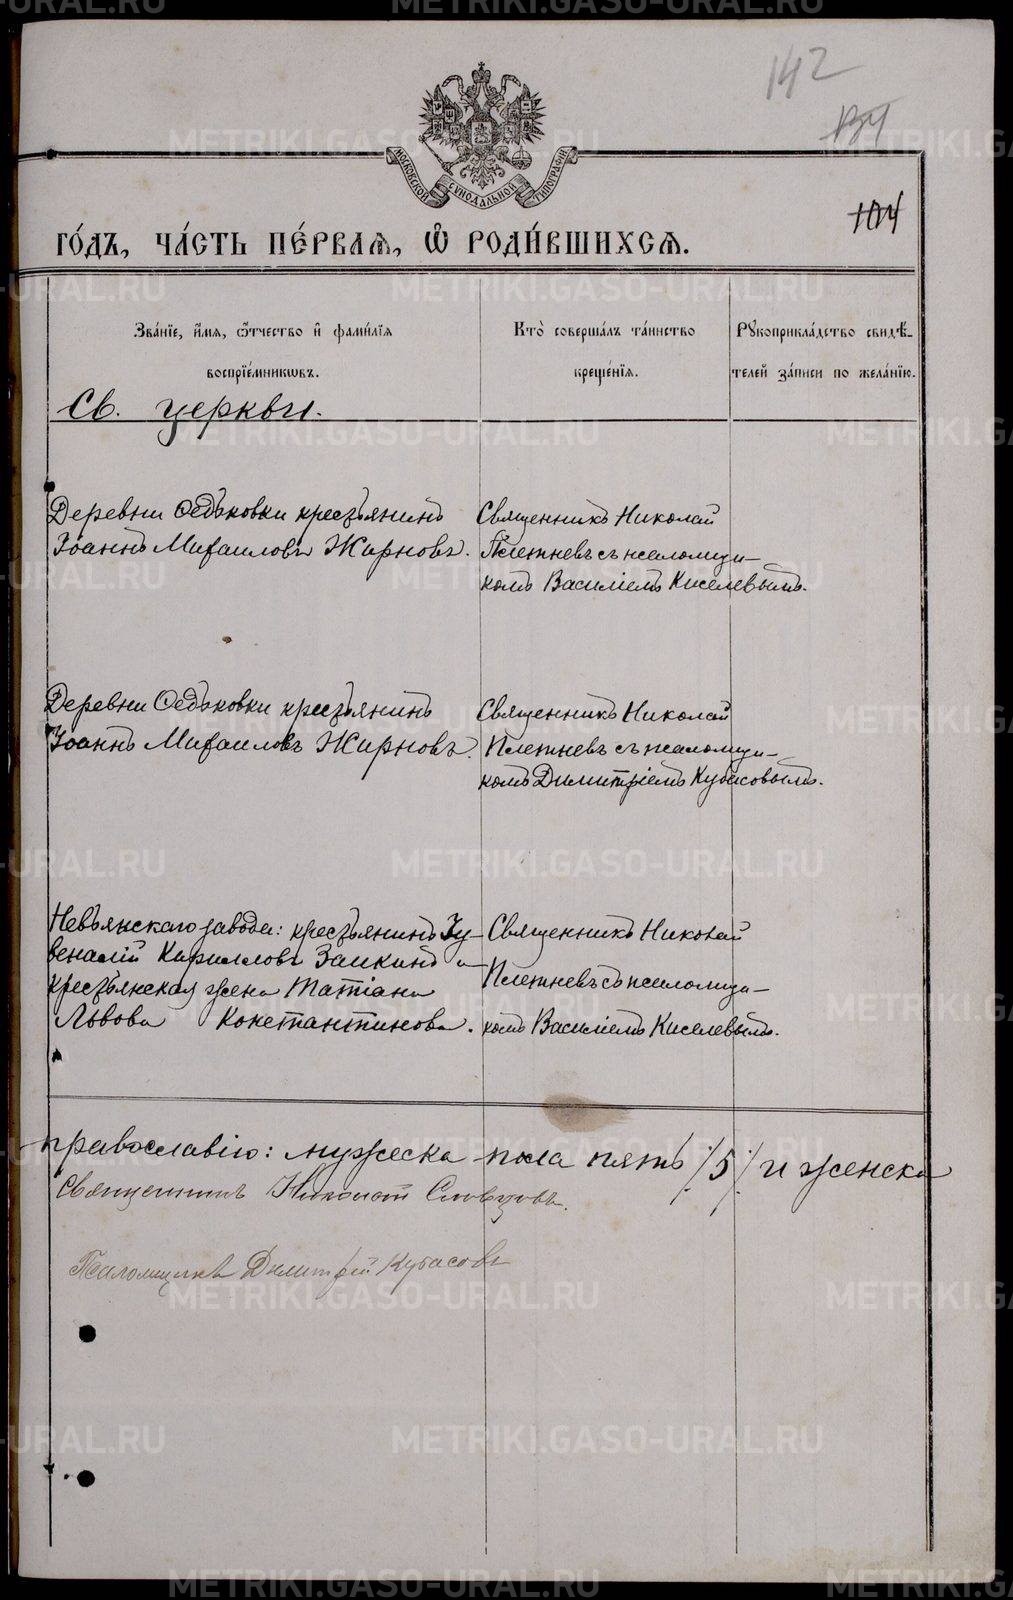 142
134
104
МОСКОВСКОЙ СУНОДАЛЬНОЙ ТИПОГРАФІИ
го́дъ, ча́сть пе́рваѧ, ѡ҆ роди́вшихсѧ.
Зва́нїе, и҆́мѧ, ѻ҆́тчество и҆ фами́лїѧ
воспрїе́мникѡвъ.
Кто̀ соверша́лъ та́инство
креще́нїѧ.
Рꙋкоприкла́дство свидѣ́-
телей за́писи по жела́нїю.
Св. церкви.
Деревни Седьковки крестьянинъ
Іоаннъ Михаиловъ Жирновъ.
Священникъ Николай
Плетневъ съ псаломщи-
комъ Василіемъ Киселевымъ.
Деревни Седьковки крестьянинъ
Іоаннъ Михаиловъ Жирновъ.
Священникъ Николай
Плетневъ съ псаломщи-
комъ Димитріемъ Кубасовымъ.
Невьянскаго завода: крестьянинъ Іу-
веналій Кирилловъ Заикинъ и
крестьянская жена Татіана
Львова Константинова.
Священникъ Николай
Плетневъ съ псаломщи-
комъ Василіемъ Киселевымъ.
православію: мужеска пола пять /5/ и женска
Священникъ Николай Словцовъ.
Псаломщикъ Димитрій Кубасовъ
METRIKI.GASO-URAL.RU